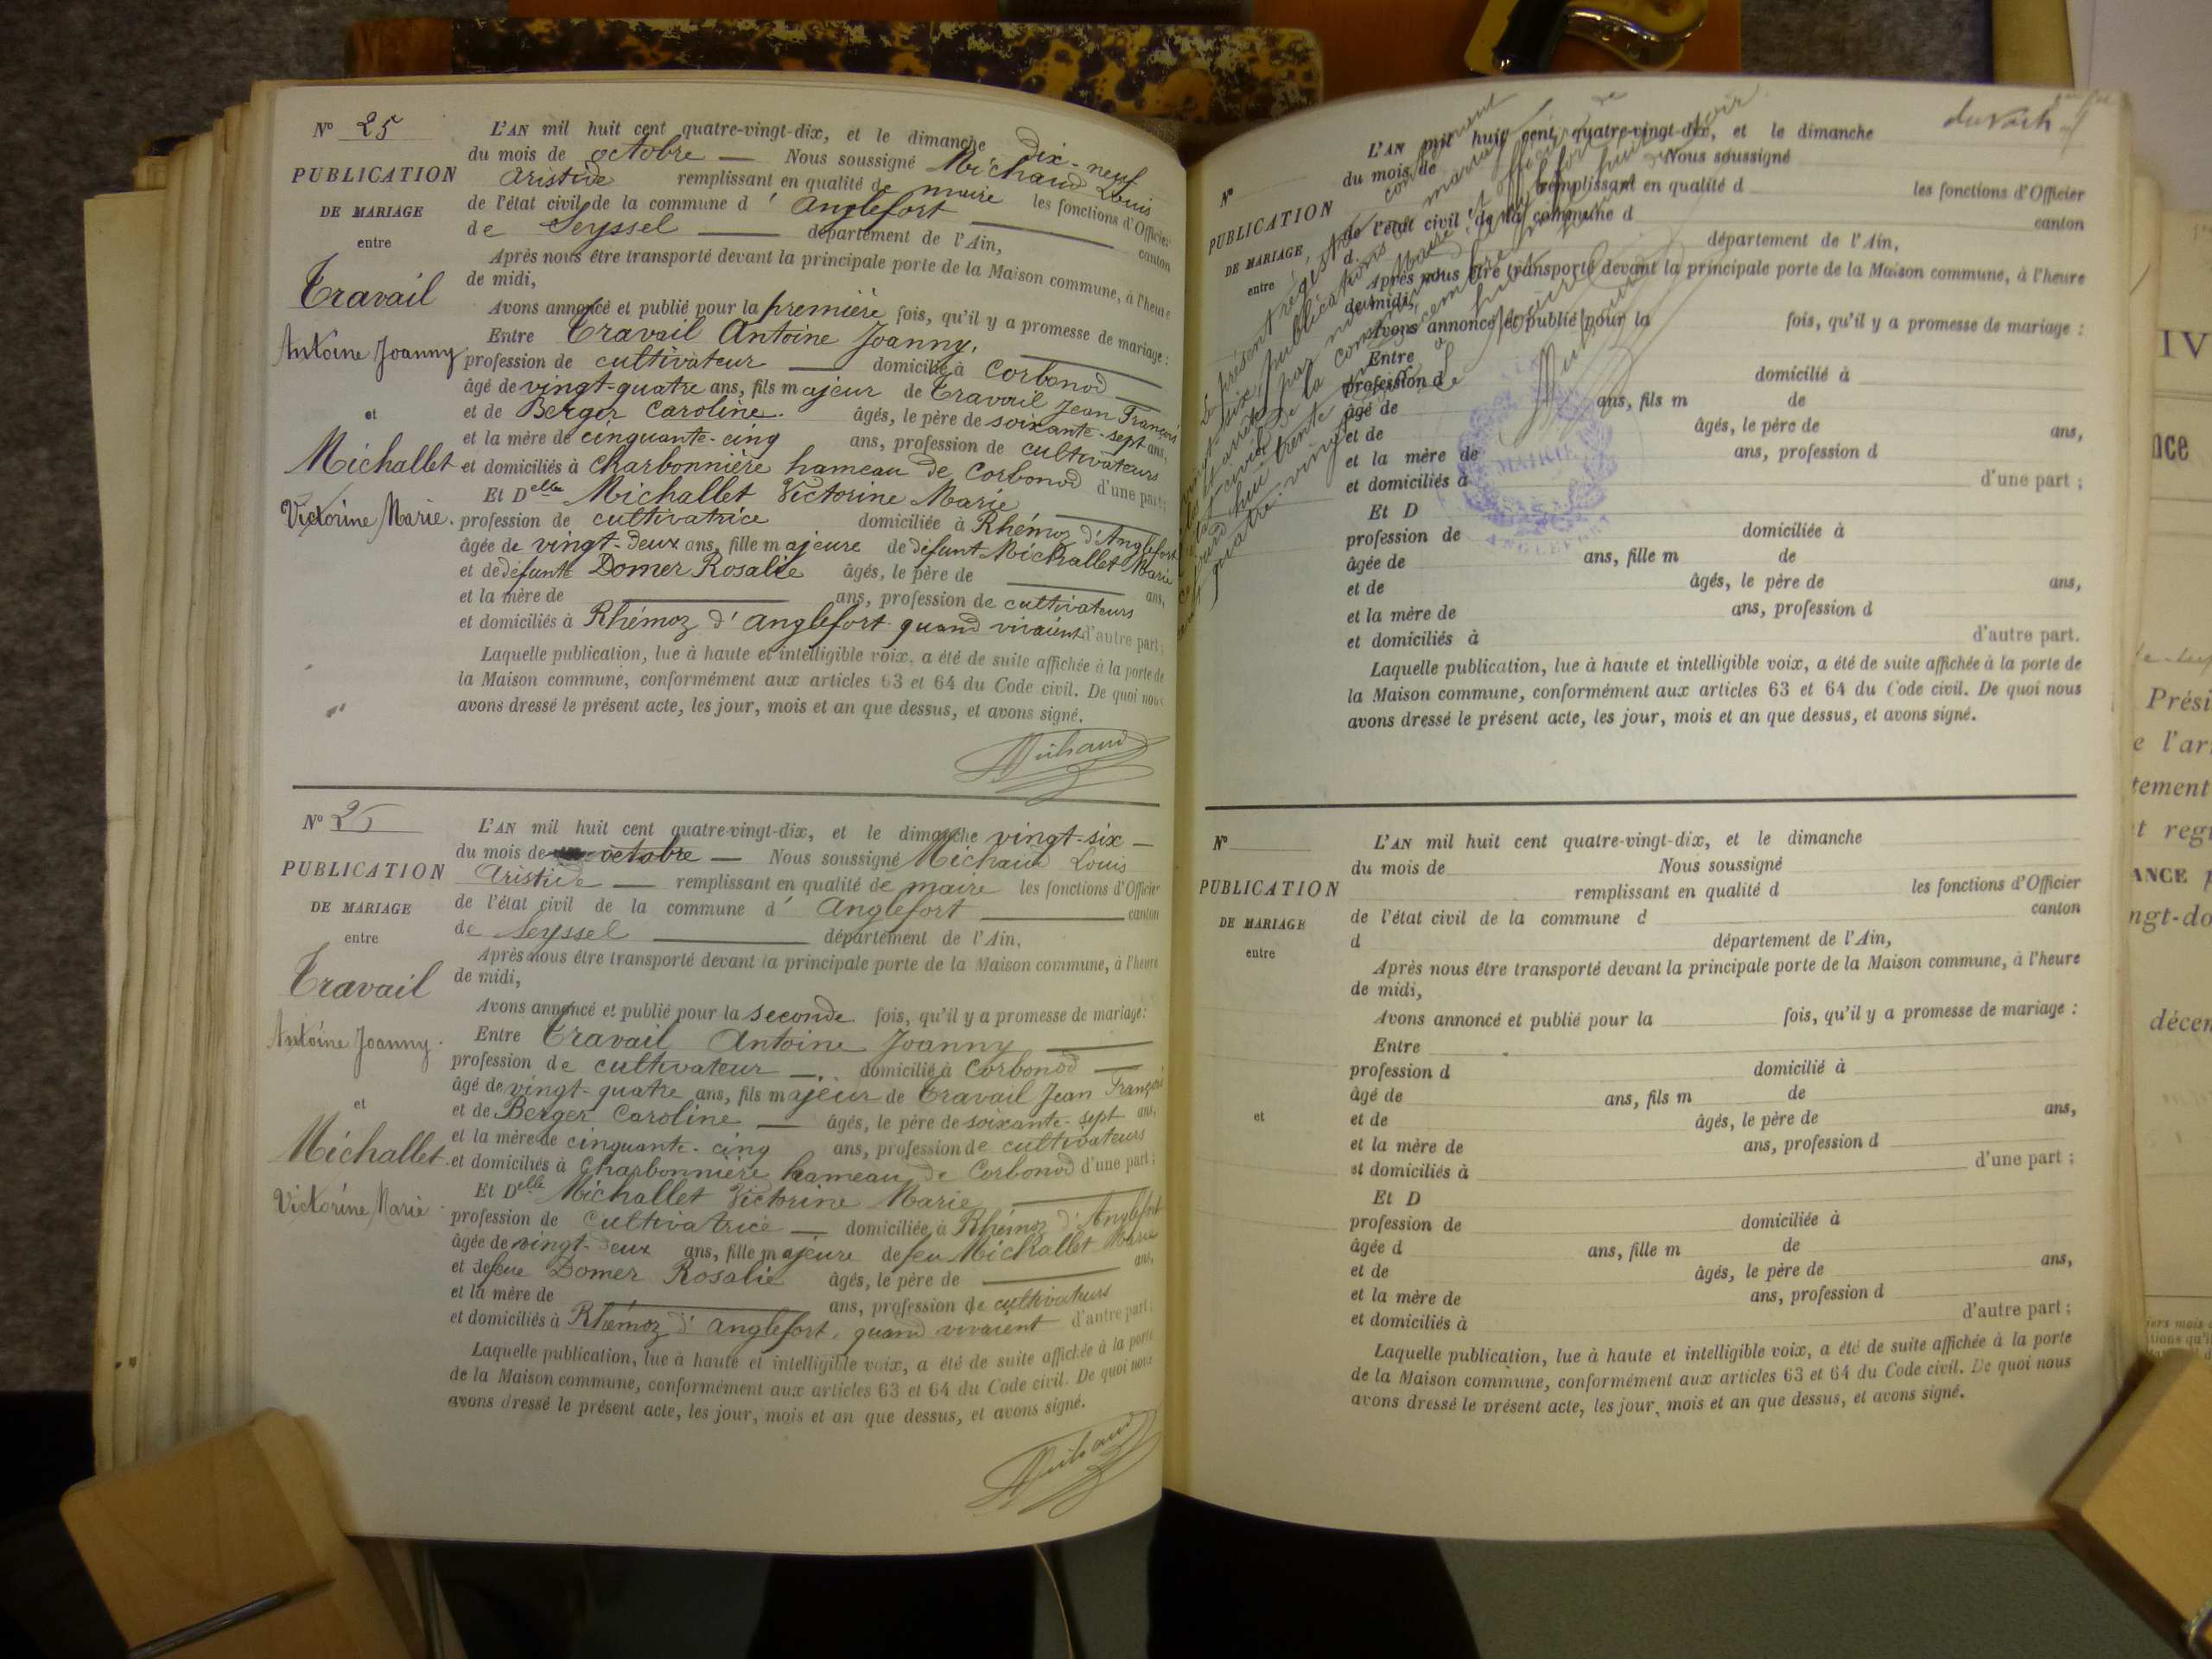 N° 25
PUBLICATION
DE MARIAGE
entre
Travail
Antoine Joanny
et
Michallet
Victorine Marie.
L'AN mil huit cent quatre-vingt-dix, et le dimanche dix-neuf
du mois de octobre — Nous soussigné Michaud Louis
Aristide remplissant en qualité de maire les fonctions d'Officier
de l'état civil de la commune d' Anglefort canton
de Seyssel département de l'Ain,
Après nous être transporté devant la principale porte de la Maison commune, à l'heure
de midi,
Avons annoncé et publié pour la première fois, qu'il y a promesse de mariage :
Entre Travail Antoine Joanny,
profession de cultivateur domicilié à Corbonod
âgé de vingt-quatre ans, fils majeur de Travail Jean François
et de Berger Caroline. âgés, le père de soixante-sept ans,
et la mère de cinquante-cinq ans, profession de cultivateurs
et domiciliés à Charbonnière hameau de Corbonod d'une part ;
Et Delle Michallet Victorine Marie
profession de cultivatrice domiciliée à Rhémoz d'Anglefort
âgée de vingt-deux ans, fille majeure de défunt Michallet Marie
et de défunte Domer Rosalie âgés, le père de ans,
et la mère de ans, profession de cultivateurs
et domiciliés à Rhémoz d'Anglefort quand vivaient d'autre part ;
Laquelle publication, lue à haute et intelligible voix, a été de suite affichée à la porte de
la Maison commune, conformément aux articles 63 et 64 du Code civil. De quoi nous
avons dressé le présent acte, les jour, mois et an que dessus, et avons signé.
Michaud
N° 26
PUBLICATION
DE MARIAGE
entre
Travail
Antoine Joanny.
et
Michallet.
Victorine Marie
L'AN mil huit cent quatre-vingt-dix, et le dimanche vingt-six —
du mois de octobre — Nous soussigné Michaud Louis
Aristide — remplissant en qualité de maire les fonctions d'Officier
de l'état civil de la commune d' Anglefort canton
de Seyssel département de l'Ain,
Après nous être transporté devant la principale porte de la Maison commune, à l'heure
de midi,
Avons annoncé et publié pour la seconde fois, qu'il y a promesse de mariage :
Entre Travail Antoine Joanny
profession de cultivateur —. domicilié à Corbonod
âgé de vingt-quatre ans, fils majeur de Travail Jean François
et de Berger Caroline — âgés, le père de soixante-sept ans,
et la mère de cinquante-cinq ans, profession de cultivateurs
et domiciliés à Charbonnière hameau de Corbonod d'une part ;
Et Delle Michallet Victorine Marie
profession de cultivatrice — domiciliée à Rhémoz d'Anglefort
âgée de vingt-deux ans, fille majeure de feu Michallet Marie
et de feue Domer Rosalie âgés, le père de ans,
et la mère de ans, profession de cultivateurs
et domiciliés à Rhémoz d'Anglefort, quand vivaient d'autre part ;
Laquelle publication, lue à haute et intelligible voix, a été de suite affichée à la porte
de la Maison commune, conformément aux articles 63 et 64 du Code civil. De quoi nous
avons dressé le présent acte, les jour, mois et an que dessus, et avons signé.
Michaud
N°
PUBLICATION
DE MARIAGE
entre
L'AN mil huit cent quatre-vingt-dix, et le dimanche
du mois de Nous soussigné
remplissant en qualité d les fonctions d'Officier
de l'état civil de la commune d canton
d département de l'Ain,
Après nous être transporté devant la principale porte de la Maison commune, à l'heure
de midi,
Avons annoncé et publié pour la fois, qu'il y a promesse de mariage :
Entre
profession d domicilié à
âgé de ans, fils m de
et de âgés, le père de ans,
et la mère de ans, profession d
et domiciliés à d'une part ;
Et D
profession de domiciliée à
âgée de ans, fille m de
et de âgés, le père de ans,
et la mère de ans, profession d
et domiciliés à d'autre part.
Laquelle publication, lue à haute et intelligible voix, a été de suite affichée à la porte de
la Maison commune, conformément aux articles 63 et 64 du Code civil. De quoi nous
avons dressé le présent acte, les jour, mois et an que dessus, et avons signé.
MAIRIE
ANGLEFORT
N°
PUBLICATION
DE MARIAGE
entre
et
L'AN mil huit cent quatre-vingt-dix, et le dimanche
du mois de Nous soussigné
remplissant en qualité d les fonctions d'Officier
de l'état civil de la commune d canton
d département de l'Ain,
Après nous être transporté devant la principale porte de la Maison commune, à l'heure
de midi,
Avons annoncé et publié pour la fois, qu'il y a promesse de mariage :
Entre
profession d domicilié à
âgé de ans, fils m de
et de âgés, le père de ans,
et la mère de ans, profession d
et domiciliés à d'une part ;
Et D
profession de domiciliée à
âgée d ans, fille m de
et de âgés, le père de ans,
et la mère de ans, profession d
et domiciliés à d'autre part ;
Laquelle publication, lue à haute et intelligible voix, a été de suite affichée à la porte
de la Maison commune, conformément aux articles 63 et 64 du Code civil. De quoi nous
avons dressé le présent acte, les jour, mois et an que dessus, et avons signé.